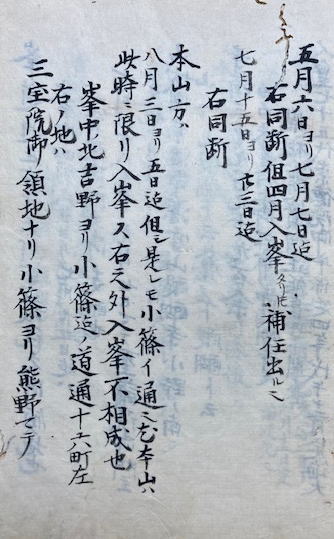 五月六日ヨリ七月七日迠
右同断但四月入峯 補任出ル
七月十五日ヨリ廿三日迠
右同断
本山方ハ
八月三日ヨリ五日迠但シ是レモ小篠イ通 本山ハ
此時ニ限リ入峯ス右之外入峯不相成也
峯中北吉野ヨリ小篠迠ノ道通十六町左
右ノ地ハ
三宝院御領地ナリ小篠ヨリ熊野